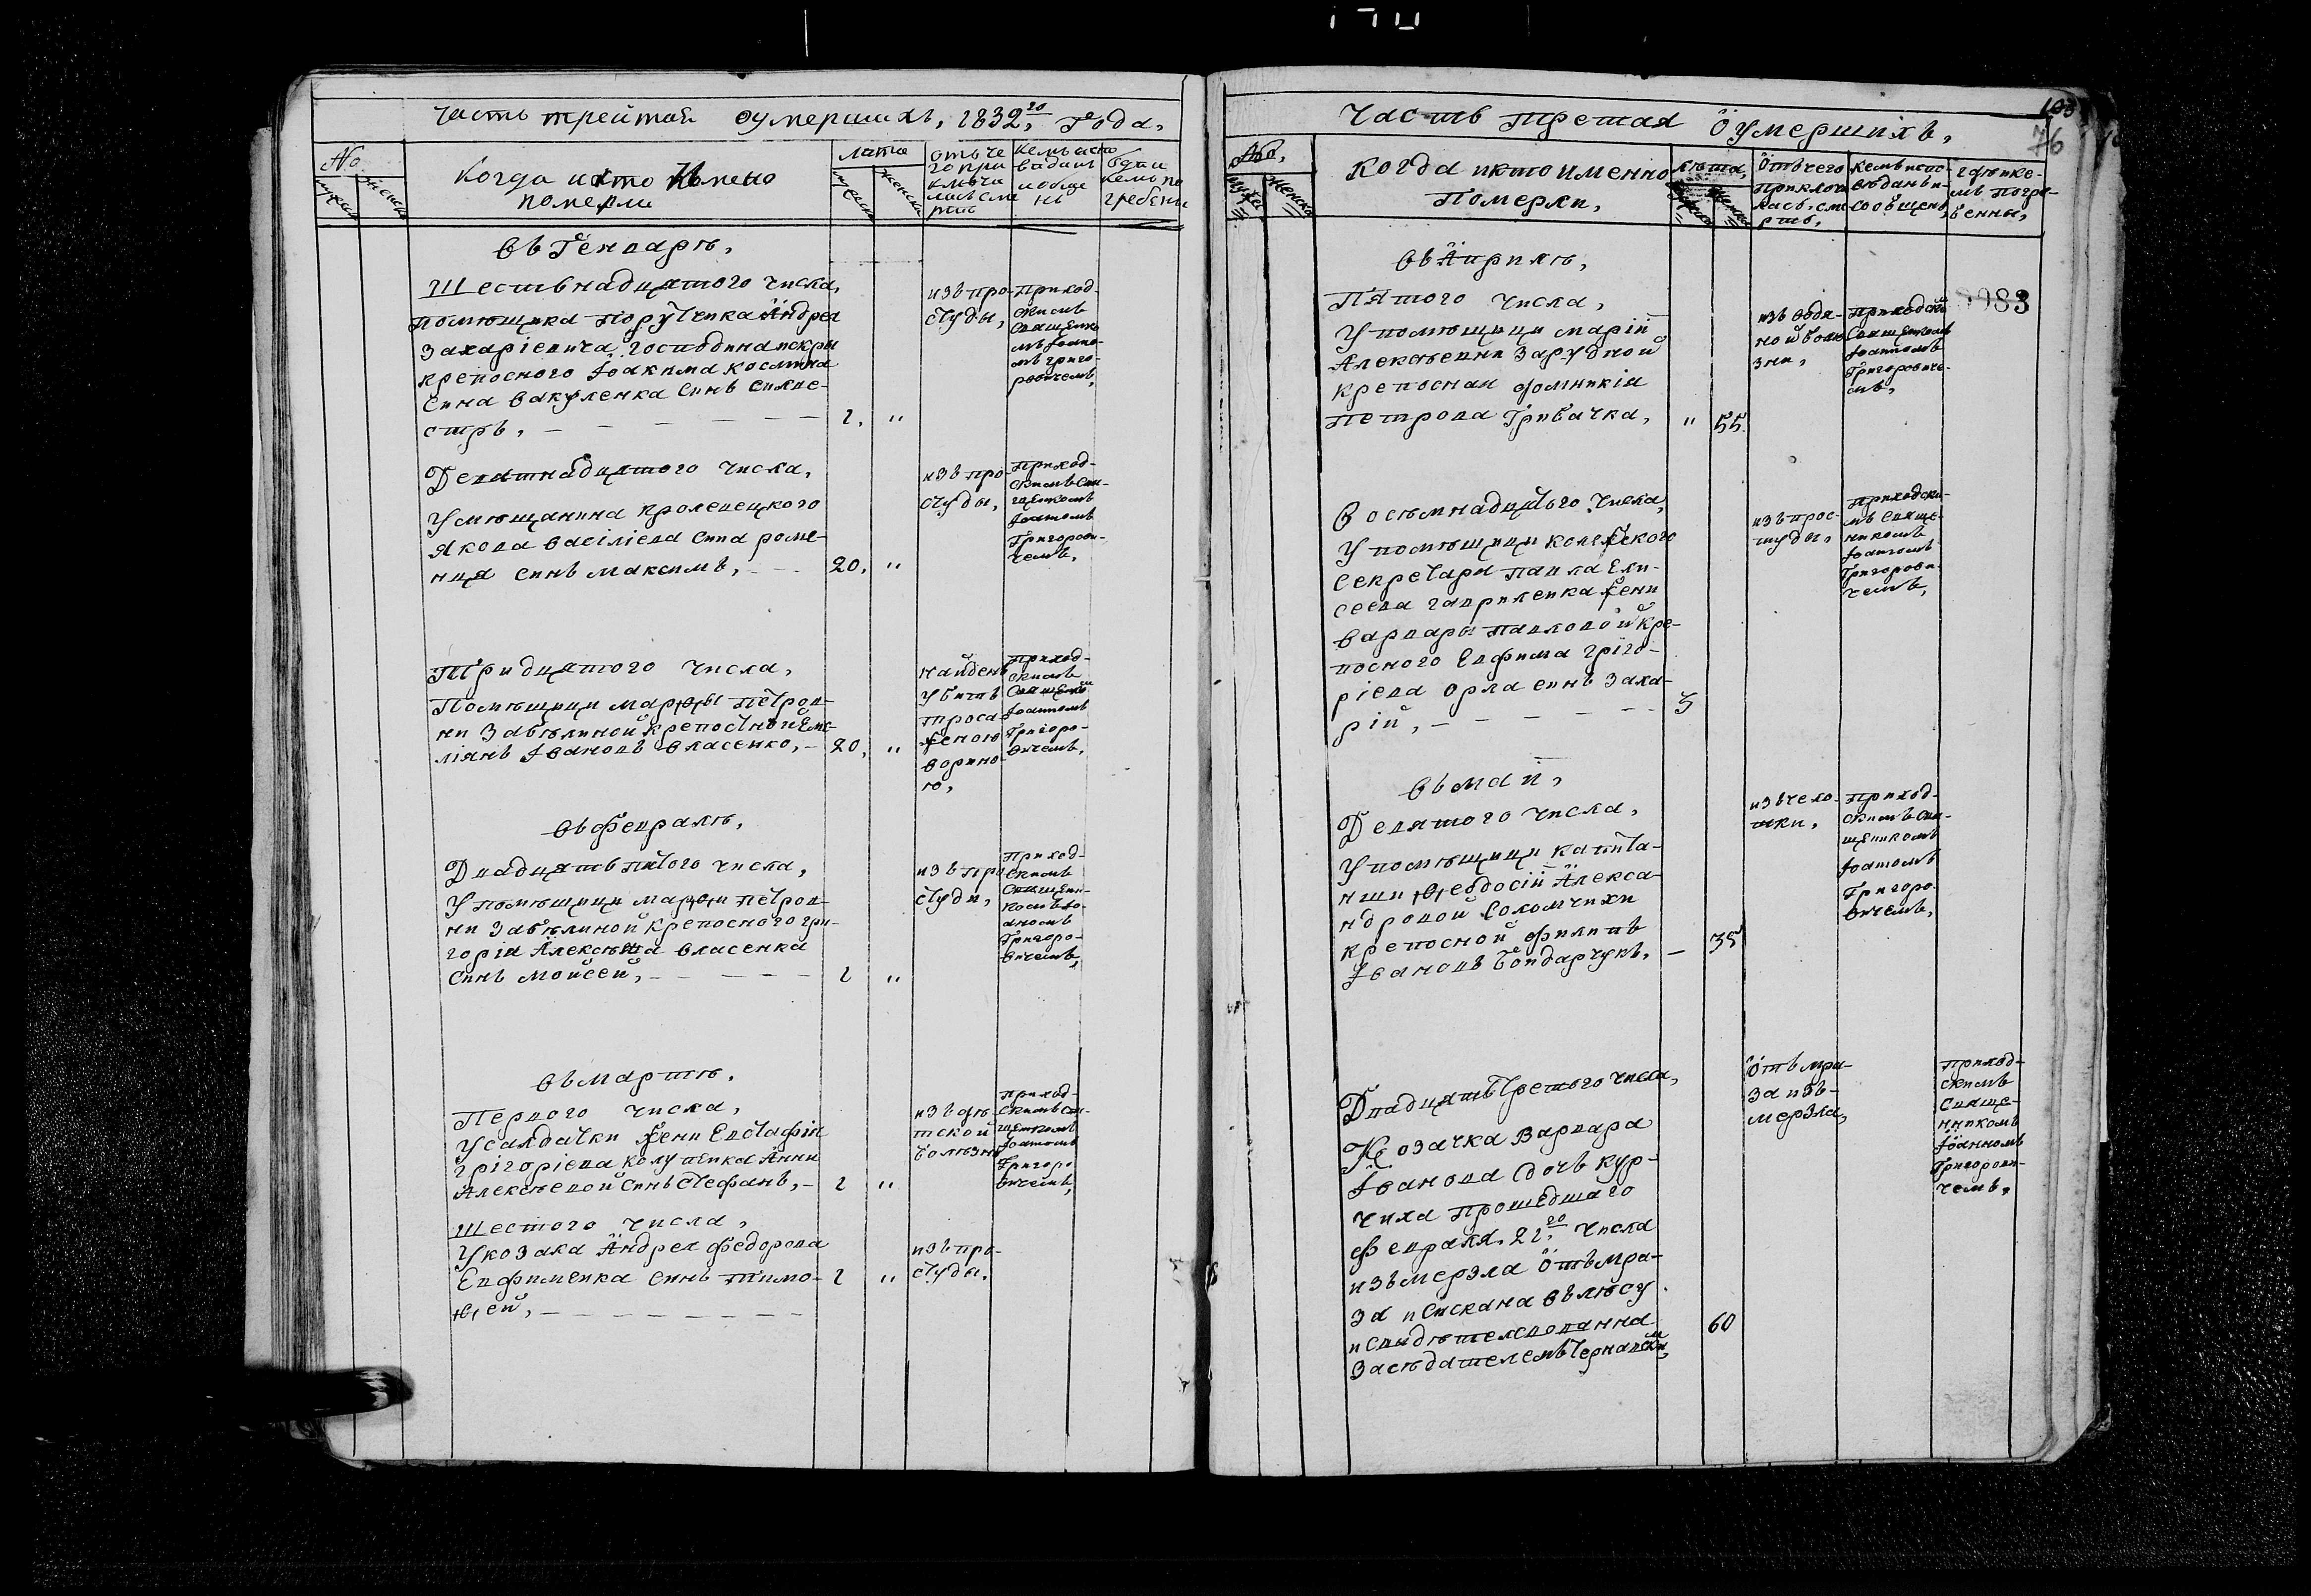 Часть трейтая оумерших, 1832,го года,
No
мужеск
женска
Когда и кто имено
померли
лета
мужеск
женска
отъ че
го при
ключи
лась сме
рть
кемъ испо
веданъ
и обще
нъ
кемъ по
гребены
въ Генваре,
Шестьнадцятого числа,
помѣщика поручика Андрея
Захаріевича господина искры
крепосного Іоакима космина
сина вакуленка синъ силве-
стръ, — — — — — — 1, "
изъ про-
студы,
приход-
скимъ
священко
мъ Іоано-
мъ григо-
ровичемъ,
Девятнадцятого числа,
У мѣщанина кролевецкого
Якова василіева сина роме-
нця синъ максимъ, — — 20, "
изъ про-
студы,
приход-
скимъ свя-
щенкомъ
Іоаномъ
Григорови-
чемъ,
Тридцятого числа,
Помѣщици марѳы петров-
ни Забѣлиной крепостной Еме-
ліянъ Івановъ власенко, — 20, "
найденъ
убитъ
приход-
скимъ
Іоаномъ
Григоро-
вичемъ,
въ Февралѣ,
Двадцять пятого числа,
У помѣщици марѳи петров-
ни Забѣлиной крепосного гри-
горія Алексѣева власенка
синъ мойсей, — — — — — 1 "
изъ про
студи,
приход-
скимъ
священ-
комъ Іо-
аномъ
Григоро-
вичемъ,
въ мартѣ,
Первого числа,
У салдатки жени Евстафія
григоріева колупенка Анни
Алексѣевой синъ стефанъ, — 1 "
изъ дѣ-
тской
болѣзни
приход-
скимъ свя-
щенкомъ
Іоаномъ
Григоро
вичемъ,
Шестого числа,
У козака Андрея федорова
Евфименка синъ тимо- 1 "
ѳей, — — — — — — —
изъ про-
студы.
Часть третая оумершихъ,
193
76
No,
мужеск
женска
Когда и кто именно
Померли,
лѣта,
отъ чего
приключи
лась сме
рть,
кемъ испо-
вѣданъ и
сообщенъ
где и ке-
мъ погре-
бенны,
въ Априлѣ,
983
Пятого числа,
У помѣщици марій
Алексѣевни Зарудной
крепосная домникія
петрова Грибачка, " 55.
изъ водя-
ной болѣ
зни,
приходски
священкомъ
Іоанномъ
Григорович-
мъ,
Восѣмнадцятого числа,
У помѣщици колежского
секретаря павла Ели-
сеева гавриленка жени
варвары павловой кре-
посного Евфима гріго-
ріева орла синъ Заха-
рій, — — — — — — — 5
изъ прос-
туды,
приходски-
мъ свяще-
никомъ
Іоанномъ
Григорови-
чемъ,
въ маи,
Девятого числа,
У помѣщици капита-
нши ѳеодосій Алекса-
ндровой соломчихи
крепосной филипъ
Івановъ бондарчукъ, — 35
приход-
скимъ свя-
щеникомъ
Іоаномъ
Григоро-
вичемъ,
Двадцять третого числа,
Козачка варвара
Іванова дочь кур-
чиха прошедшаго
февраля, 21,го числа
изъмерзла отъ мра-
за и сискана въ лѣсу
и свидѣтелевованна 60
Засѣдателемъ
отъ мра-
за изъ-
мерзла,
приход-
скимъ
свяще-
нникомъ
Іоанномъ
Григорови-
чемъ,